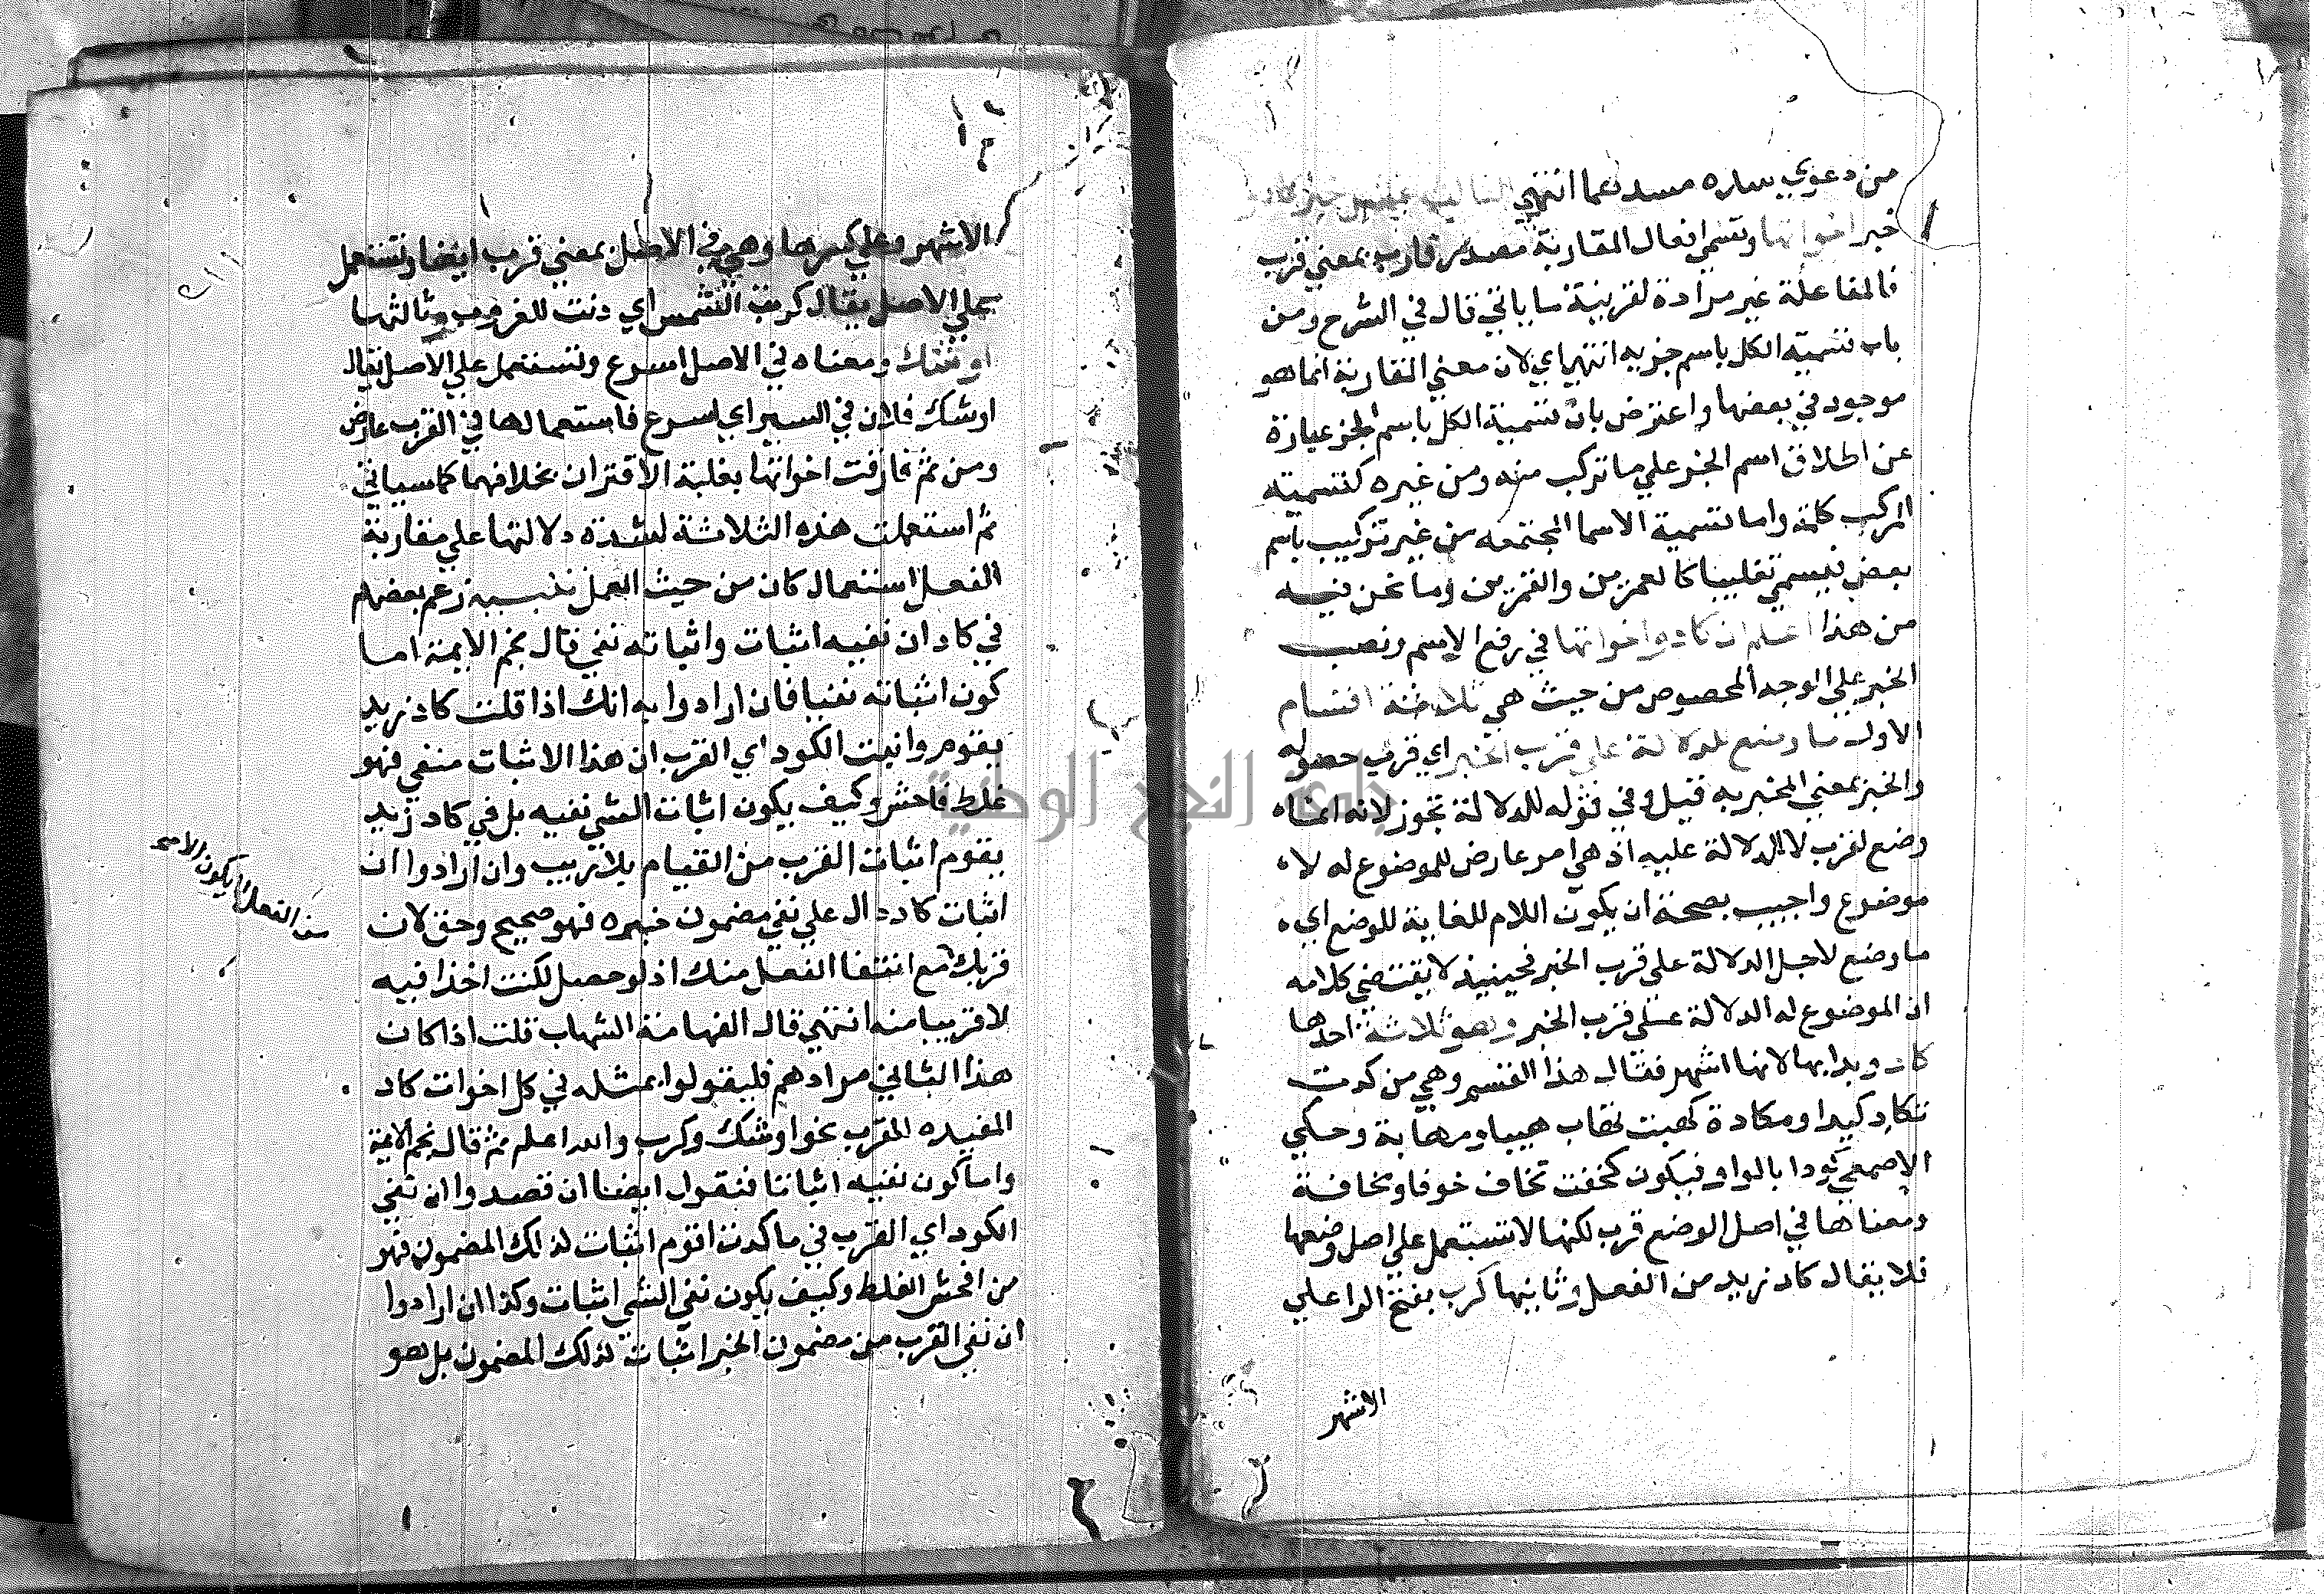 من دعوي ساده مسدعما انتهي الثاليث عشر خبر كاد و
خبر اخواتها وتسمي افعال المقاربة مصدر قارب بمعني قرب
فالمفاعلة غير مرادة لقرينة ما ياتي قال في الشرح ومن
باب تسمية الكل باسم جزيه انتهي اي لان معني المقاربة انما هو
موجود في بعضها واعترض بان تسمية الكل باسم الجز عبارة
عن اطلاق اسم الجز علي ما تركب منه ومن غيره كتسمية
المركب كلمة واما تسمية الاسما المجتمعه من غير تركيب باسم
بعض فيسمي تغليبا كالعمرين والقمرين وما نحن فيه
من هذا اعلم ان كاد واخواتها في رفع الاسم ونصب
الخبر علي الوجه المخصوص من حيث هي ثلاثة اقسام
الاول ما وضع للدلالة علي قرب الخبر اي قرب حصوله
والخبر بمعني المخبر به قيل وفي قوله للدلالة تجوز لانه انما
وضع لقرب لا للدلالة عليه اذ هي امر عارض للموضوع له لا
موضوع واجيب بصحة ان يكون اللام للغاية للوضع اي
ما وضع لاجل الدلالة علي قرب الخبر فحينيذ لا يقتضي كلامه
ان الموضوع له الدلالة علي قرب الخبر وهو ثلاثة احدها
كاد وبدا بها لانها اشهر فقال هذا القسم وهي من كدت
تكاد كيدا ومكادة كهبت تهاب هيبا ومهابة وحكي
الاصمعي كودا بالواو فيكون كخفت تخاف خوفا ومخافة
ومعناها في اصل الوضع قرب لكنها لا تستعمل علي اصل وضعها
فلا يقال كاد زيد من الفعل وثانيها كرب بفتح الرا علي
الاشهر
الاشهر وعلي كسرها وهي في الاصل بمعني قرب ايضا وتستعمل
علي الاصل يقال كربت الشمس اي دنت للغروب وثالثها
اوشك ومعناه في الاصل اسرع وتستعمل علي الاصل يقال
اوشك فلان في السير اي اسرع فاستعمالها في القرب عارض
ومن ثم فارقت اخواتها بغلبة الاقتران بخلافهما كما سياتي
ثم استعملت هذه الثلاثة لشدة دلالتها علي مقاربة
الفعل استعمال كان من حيث العمل تنبيه زعم بعضهم
في كاد ان نفيه اثبات واثباته نفي قال نجم الايمة اما
كون اثباته نفيا فان ارادوا به انك اذا قلت كاد زيد
يقوم واثبت الكود اي القرب ان هذا الاثبات منفي فهو
غلط فاحش وكيف يكون اثبات الشي نفيه بل في كاد زيد
يقوم اثبات القرب من القيام بلا ريب وان ارادوا ان
اثبات كاد دال علي نفي مضمون خبره فهو صحيح وحق لان
قربك مع انتفا الفعل منك اذ لو حصل لكنت اخذا فيه
لا قريبا منه انتهي قال الفهامة الشهاب قلت اذا كان
هذا الثاني مرادهم فليقولوا بمثله في كل اخوات كاد
المفيده القرب نحو اوشك وكرب والله اعلم ثم قال نجم الايمة
واما كون نفيه اثباتا فنقول ايضا ان قصدوا ان نفي
الكود اي القرب في ما كدت اقوم اثبات لذلك المضمون فهو
من افحش الغلط وكيف يكون نفي الشي اثبات وكذا ان ارادوا
ان نفي القرب من مضمون الخبر اثبات لذلك المضمون بل هو
من الفعل لا يكون الا مع
جامعة النجاح الوطنية